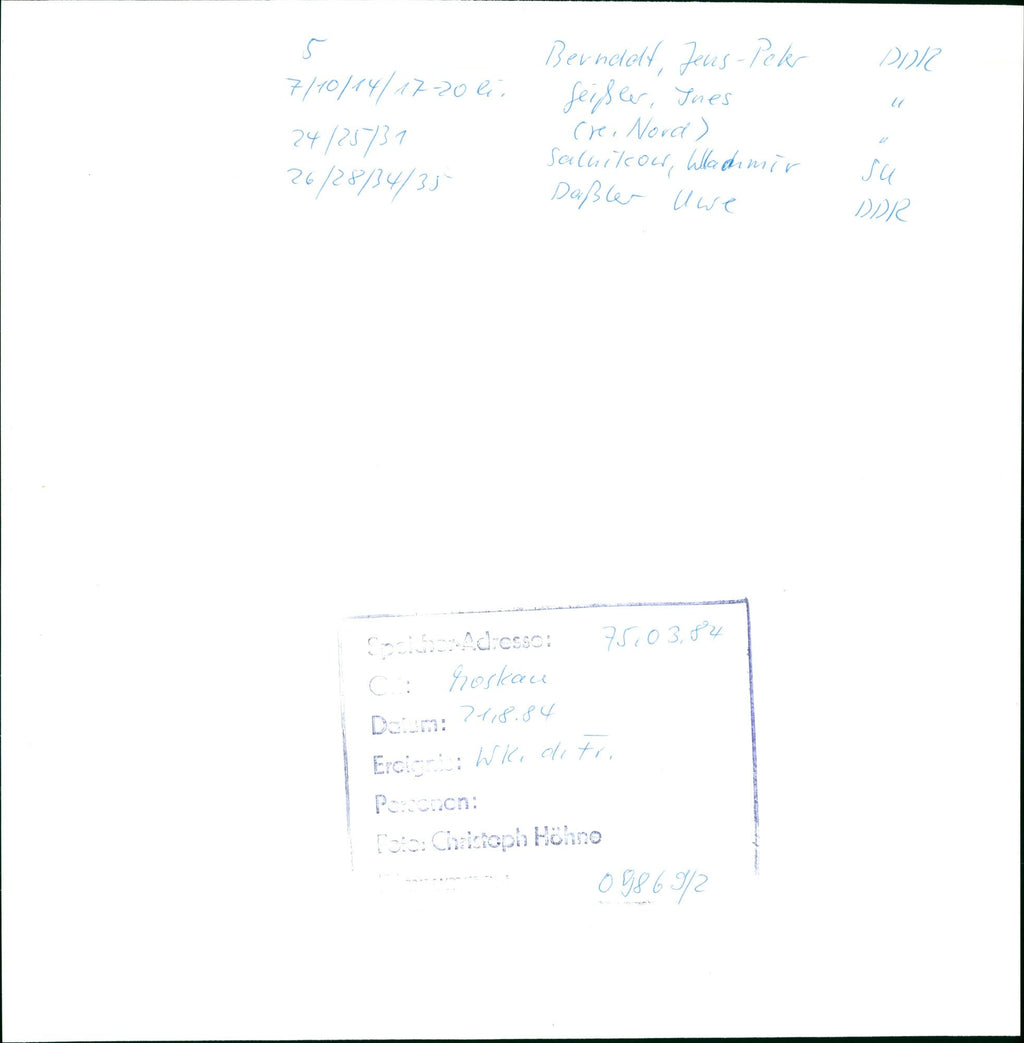 5 Bernddt, Jens-Peter DDR
7/10/14/17-20 li. Geißler, Ines "
(re. Nord) "
24/25/31 Salnikow, Wladimir SU
26/28/34/35 Daßler Uwe DDR
Speicher-Adresse: 75.03.84
Ort: Moskau
Datum: 21.8.84
Ereignis: WK. d. Fr.
Personen:
Foto: Christoph Höhne
09869/2